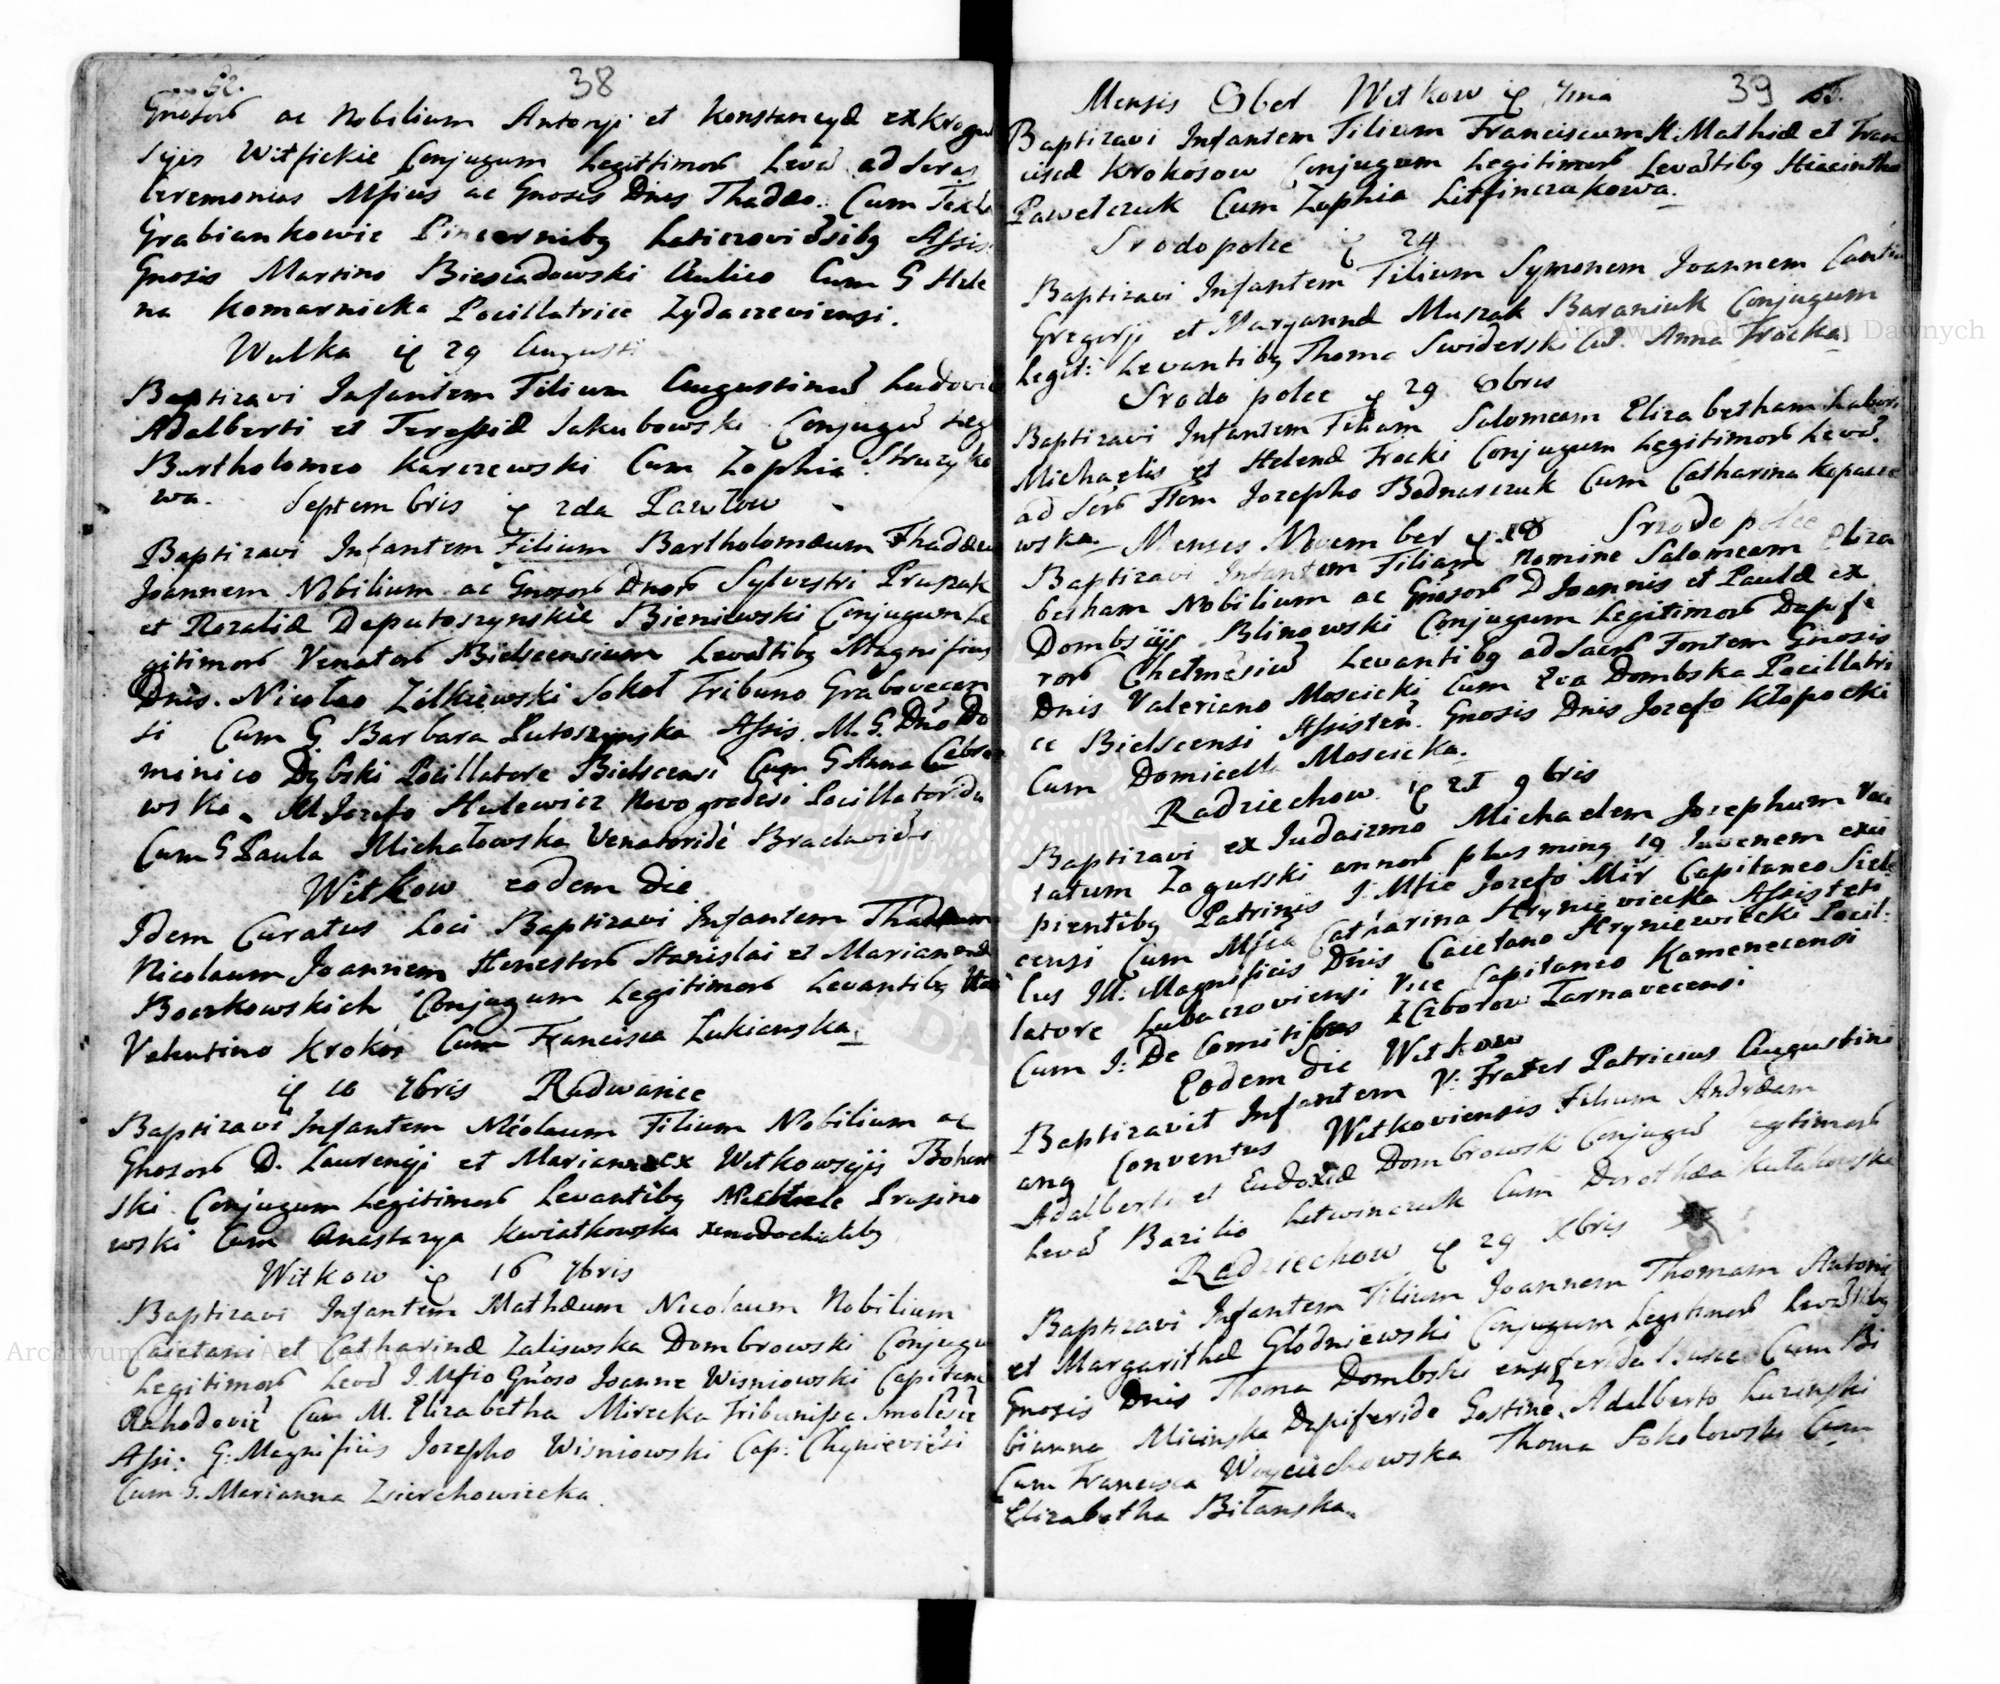 62.
38
Gnosorũ ac Nobilium Antonji et Konstancyæ ex
syis Witfickie Conjugum Legittimorũ Levã ad Sacras
Ceremonias Mfius ac Gnosis Dnis Thadæo. Cum Tekla
Grabiankowie Pincernibg Laticzoviẽsibg Assis:
Gnosis Martino Biesiadowski Aulico Cum G Hele
na Komarnicka Pocillatrice Zydaczeviensi.
Wulka ip 29 Augusti
Baptizavi Infantem Filium Augustinũ Ludovic
Adalberti et Teressiæ Jakubowski Conjugũ Leg
Bartholomeo Karczewski Cum Zophia Struzyko
wa. Septembris ip 2da Pawlow
Baptizavi Infantem Filium Bartholomæum Thadæu
Joannem Nobilium ac Gnosorũ Dnorũ Sylvestri Prusak
et Rozaliæ Deputoszynskie Bieniewski Conjugum Le
gitimorũ Venatorũ Bielscensium Levãtibg Magnifius
Dnis. Nicolao Zilkiewski Sokol Tribuno Grabovecen
si Cum G Barbara Putoszynska Assis. M. G. Dño Do
minico Dybski Pocillatore Bielscensi Cum G Anna
wska. M. Jozefo Hulewicz Novogrodẽsi Pocillatoridu
Cum G Paula Michalowska Venatoridé Braclaviẽsi
Witkow eodem die
Idem Curatus Loci Baptizavi Infantem Thadæum
Nicolaum Joannem Honestorũ Stanislai et Mariannæ
Boczkowskich Conjugum Legitimorũ Levantibg
Valentino Krokós Cum Francisca Zukienska.
ip 10 7bris Radwance
Baptizavi Infantem Nicolaum Filium Nobilium ac
Gnosorũ D. Laurencji et Mariannæ ex Witkowscyis
ski Conjugum Legitimorũ Levantibg Prusino
wski Cum Anastazya Kwiatkowska xenodochialibg
Witkow ip 16 7bris
Baptizavi Infantem Mathæum Nicolaum Nobilium
Caietani et Catharinæ Zaliswska Dombrowski Conjugu
Legitimorũ Levã I. Mfio Gnoso Joanne Wisniowski Capitane
Cum M. Elizabetha Mirecka Tribunissa
Assi: G: Magnifiis Jozepho Wisniowski Cap:
Cum G. Marianna Zsierchowiecka.
Mensis 8ber Witkow ip 7ma
39
Baptizavi Infantem Filium Franciscum H. Mathiæ et Fran
ciscæ Krokosow Conjugum Legitimorũ Levãtibg Hiacintho
Pawelczuk Cum Zophia Litfinczukowa.
Srodopolce ip 24
Baptizavi Infantem Filium Symonem Joannem
Gregorji et Maryannæ Muszak Baraniuk Conjugum
Legit: Levantibg Thoma Swiderski Cũ. Anna Trocka.
Srodo polce ip 29 8bris
Baptizavi Infantem Filiam Salomeam Elizabetham
Michaelis et Helenæ Trocki Conjugum Legitimorũ Levã.
ad Sacr Ftem Jozepho Bednarczuk Cum Catharina Kopacze
wska. Menses November ip 18 Srzodo polce
Baptizavi Infantem Filiam Nomine Salomeam Eliza
betham Nobilium ac Gnosorũ D Joannis et Paulæ ex
Dombsciis Blinowski Conjugum Legitimorũ Dapife
rorũ Chelmẽsiũ Levantibg ad Sacrũ Fontem Gnosis
Dnis Valeriano Moscicki Cum Eva Dombska Pocillatri
ce Bielscensi Assisten. Gnosis Dnis Jozefo Klopocki
Cum Domicella Moscicka.
Radziechow ip 21 9bris
Baptizavi ex Judaizmo Michaelem Jozephum
tatum Zagurski annorũ plus ming 19 Juvenem
pientibg Patrinis I: Mfic Jozefo Mir Capitaneo
censi Cum Mfica Catharina Hryniewiecka
lus Ill: Magnificis Dnis Caietano Hryniewiecki Pocil:
latore Lubaczoviensi Vice Capitaneo Kamenecensi
Cum I: De Comitibus Tarnavecensi
Eodem Die Witkow
Baptizavit Infantem V: Frater Patricius Augustini
ang Conventus Witkoviensis Filium Andræam
Adalberti et Eudoxiæ Dombrowski Conjugũ Legitimorũ
Levã Bazilio Letwinczuk Cum Dorothæa Kulakowska
Radziechow ip 29 Xbris
Baptizavi Infantem Filium Joannem Thomam Antoni
et Margarithæ Glodniewski Conjugum Legitimorũ Levãtibg
Gnosis Dnis Thoma Dombski Cum Bi
bianna Micinska Dapiferide Gostinẽ. Adalberto Luzinski
Cum Francisca Woyciechowska Thoma Sokolowski Cum
Elizabetha Bilanska.